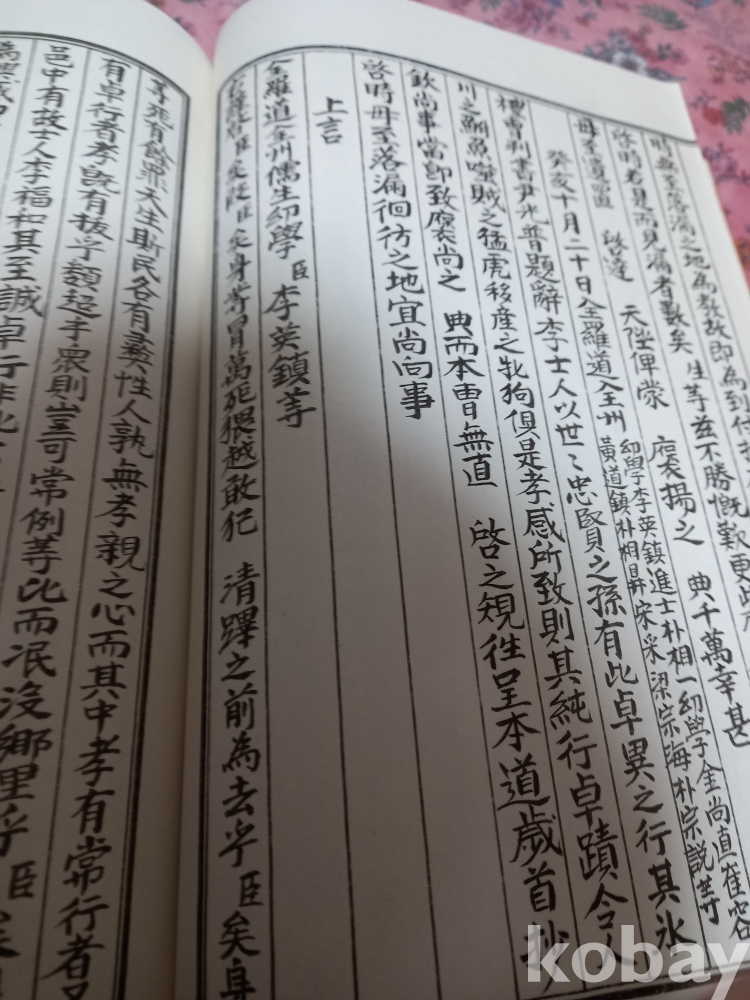 時毋至落漏之地為教故即為到付
啓時若是而見漏者數矣生等玆不勝慨歎更
毋至遺漏 啓達 天陛俾蒙 褒揚之 典千萬幸甚
癸亥十月二十日全羅道全州 幼學李英鎮進士朴相一幼學金尚直崔
黃道鎮朴相昇宋采梁宗海朴宗說等
禮曹判書尹光普題辭李士人以世〻忠賢之孫有此卓異之行其氷
川之鮒魚噬賊之猛虎移産之牝狗俱是孝感所致則其純行卓蹟令人
欽尚事當即致褒尚之 典而本曹無直 啓之規徃呈本道歲首抄
啓時毋至落漏徊彷之地宜尚向事
上言
全羅道全州儒生幼學臣李英鎮等
右謹啓臣矣段臣矣身等冒萬死猥越敢犯 清蹕之前為去乎臣矣身
等死有餘罪天生斯民各有彞性人孰無孝親之心而其中孝有常行者又
有卓行者孝旣有拔乎類超乎衆則豈可常例等比而泯沒鄉里乎臣矣
邑中有故士人李福和其至誠卓行非
kobay